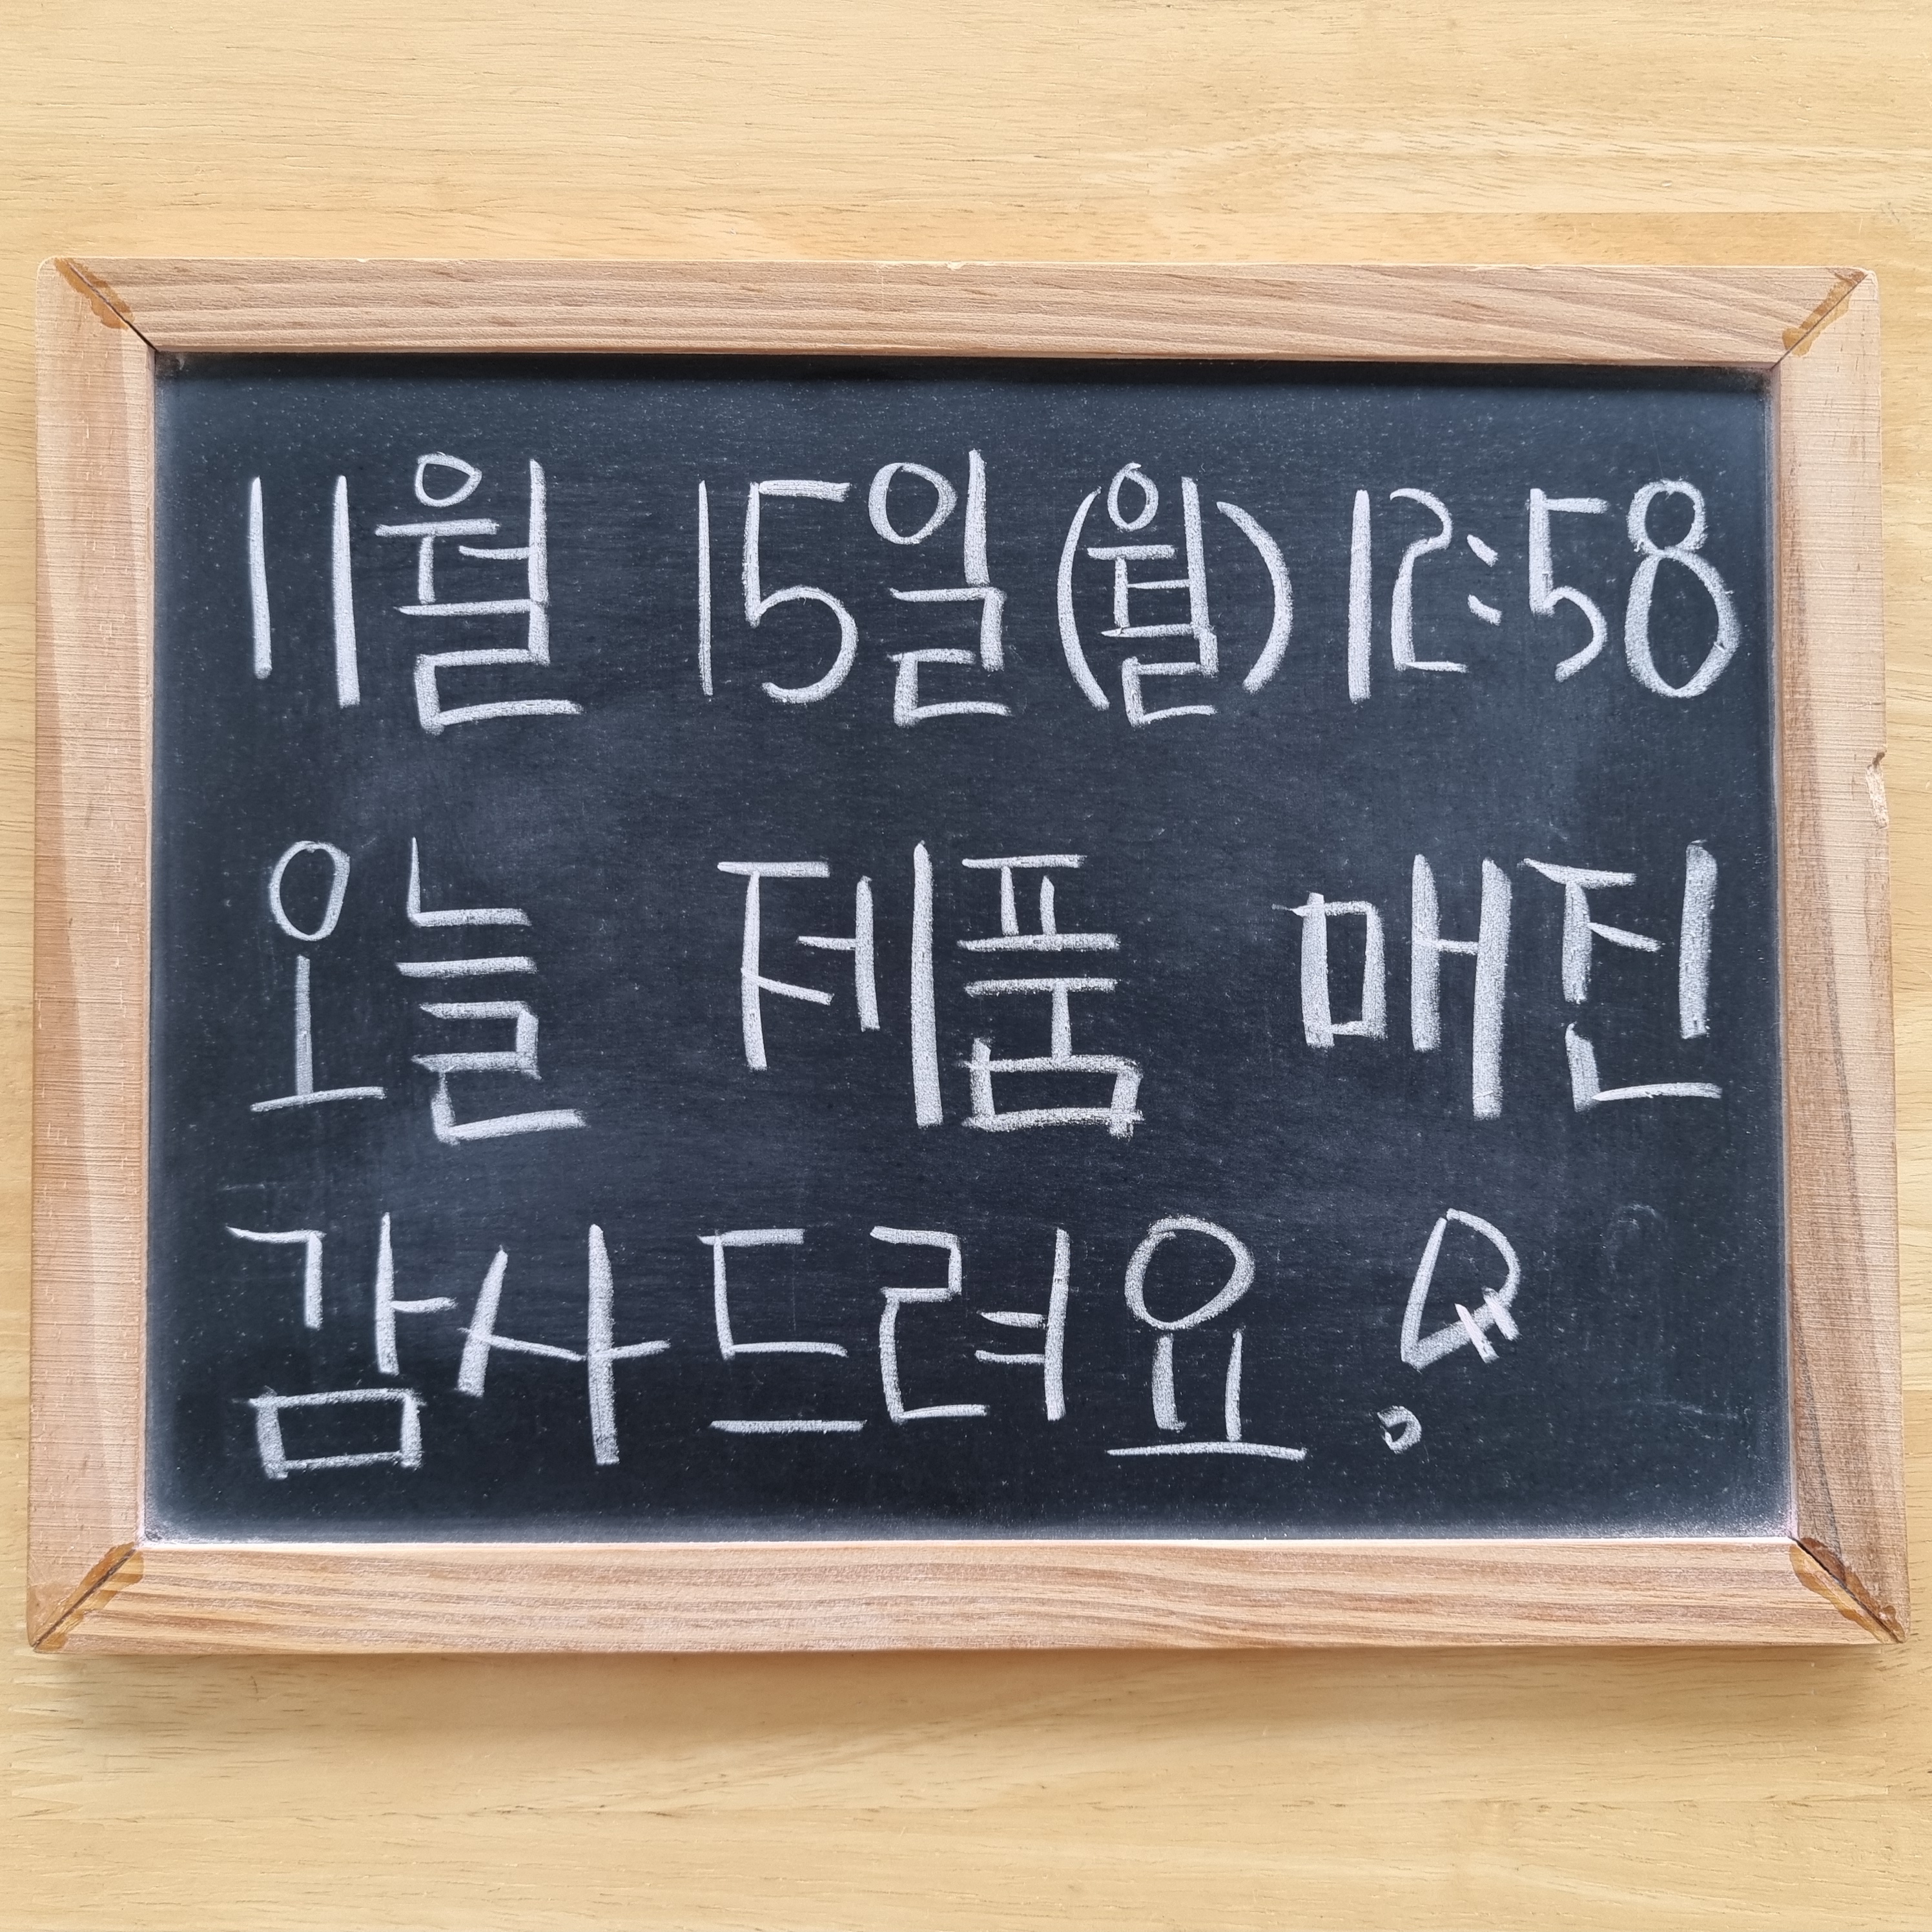 11월 15일(월) 12:58
오늘 제품 매진
감사드려요!